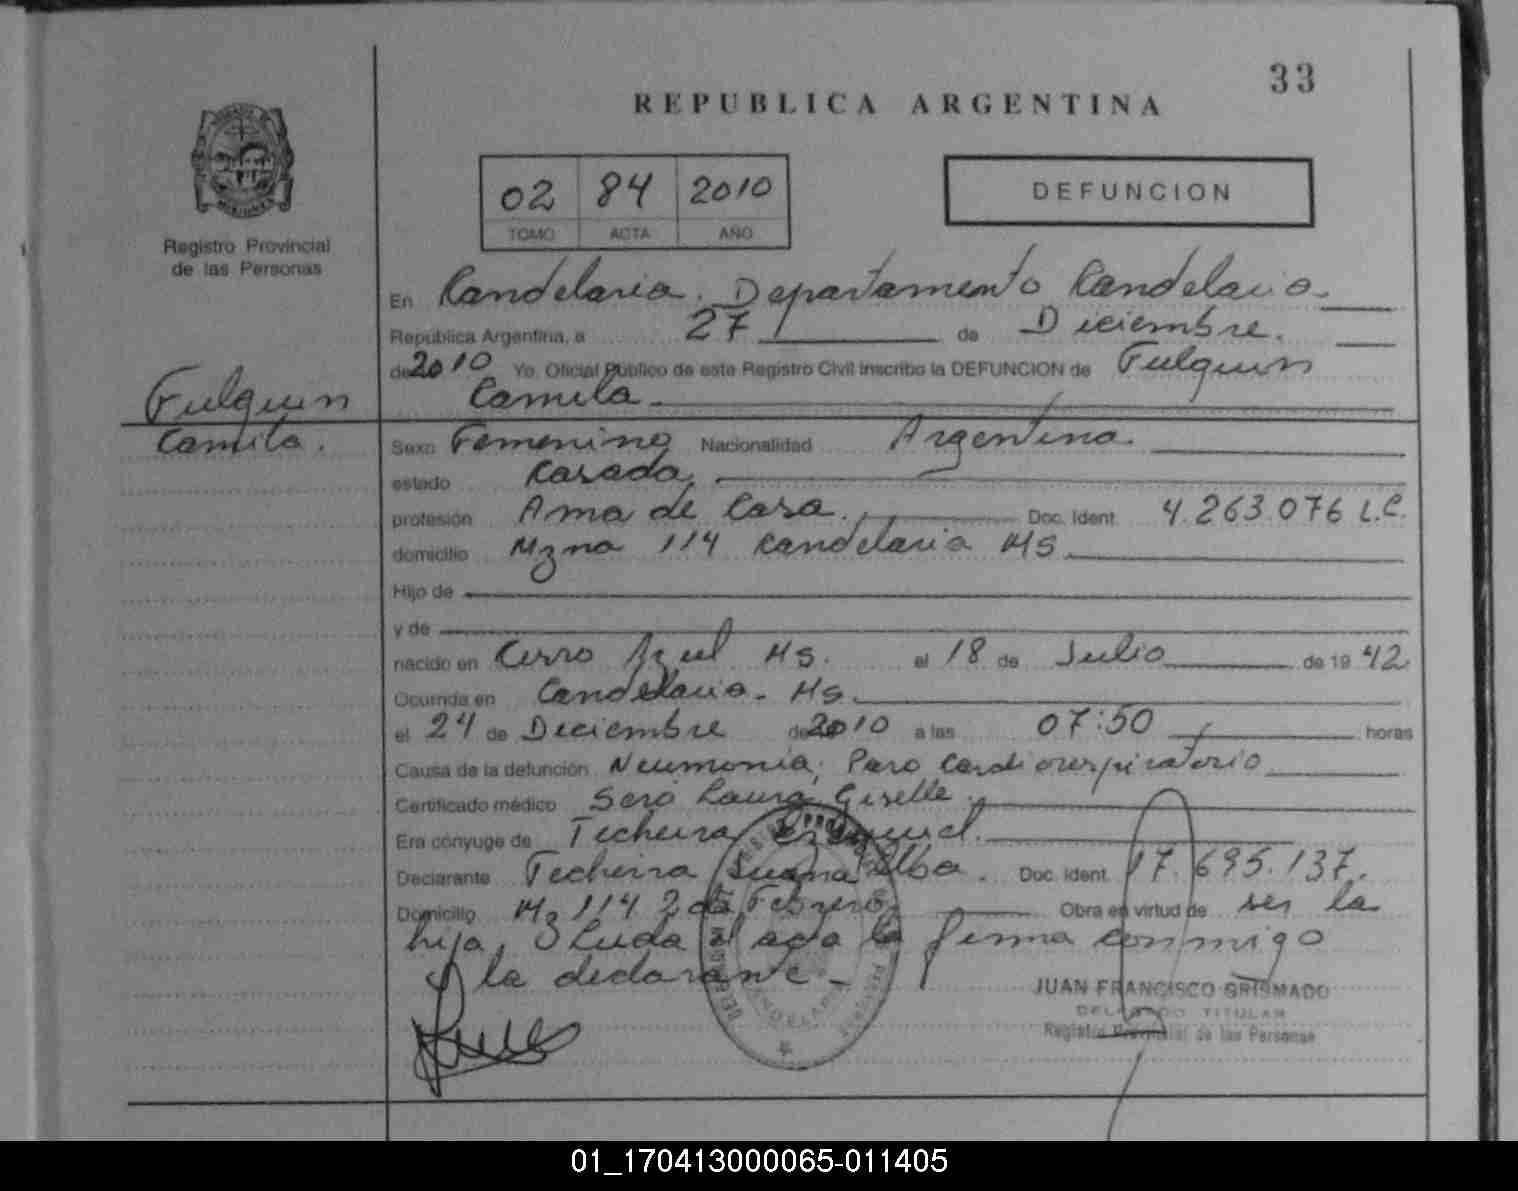 33
REPUBLICA ARGENTINA
02 84 2010
TOMO ACTA AÑO
DEFUNCION
Registro Provincial
de las Personas
En Candelaria. Departamento Candelaria
República Argentina, a 27 de Diciembre.
de 2010 Yo, Oficial Público de este Registro Civil inscribo la DEFUNCION de Fulquin
Camila
Fulquin
Camila.
Sexo Femenino Nacionalidad Argentina.
estado Casada,
profesión Ama de Casa. Doc. Ident. 4.263.076 L.C.
domicilio Mzna 114 Candelaria Ms
Hijo de
y de
nacido en Cerro Azul Ms. el 18 de Julio de 19 42
Ocurrida en Candelaria - Ms.
el 24 de Diciembre de 2010 a las 07:50 horas
Causa de la defunción Neumonía, Paro Cardiorespiratorio
Certificado médico Laura Giselle.
Era cónyuge de Techeira
Declarante Techeira Juana Alba. Doc. Ident. 17.695.137.
Domicilio Mz 114 2 de Febrero Obra en virtud de ser la
hija, Leida el acta la firma conmigo
la declarante -
JUAN FRANCISCO GRISMADO
DELEGADO TITULAR
Registro Provincial de las Personas
01_170413000065-011405